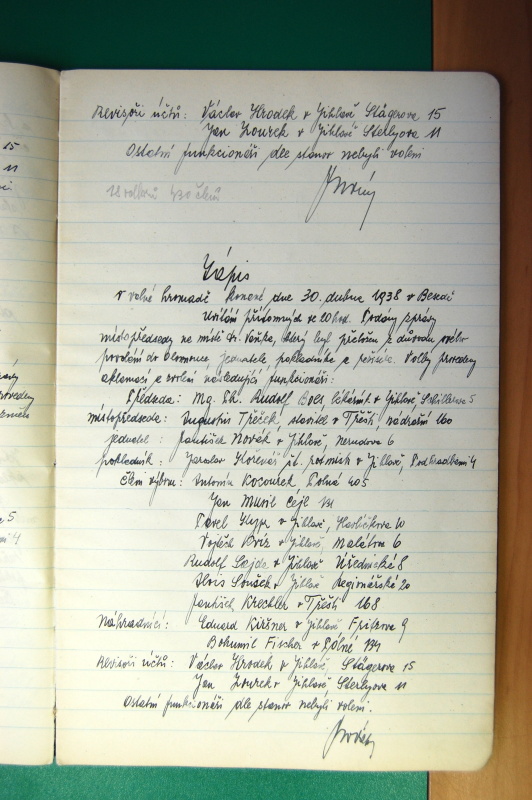 Revisoři účtů: Václav Hrodek v Jihlavě Stägerova 15
Jan Zourek v Jihlavě Sterlyova 11
Ostatní funkcionáři dle stanov nebyli voleni
Zápis
o valné hromadě konané dne 30. dubna 1938 v
Uvítání přítomných ve 20 hod. Podány zprávy
místopředsedy na místě dr. Vaňka, který byl přeložen z důvodu
povolání do Olomouce, jednatele, pokladníka a revisorů. Volby provedeny
aklamací a zvoleni následující funkcionáři:
Předseda: Mg. Ph. Rudolf lékárník v Jihlavě, Schillerova 5
místopředseda: Augustin Třeček, stavitel v Třešti nádražní 460
jednatel: František Novák v Jihlavě, Nerudova 6
pokladník: Jaroslav Kořenář št. rotmistr v Jihlavě, Pod hradbami 4
Členi výboru: Antonín Kocourek Polná 405
Jan Musil Cejl 131
Pavel Hypr v Jihlavě, Havlíčkova 10
Vojtěch Bříz v Jihlavě, Malátova 6
Rudolf Lajda v Jihlavě Úřednická 8
Alois Soušek v Jihlavě Legionářská 20
František Krechler v Třešti 168
Náhradníci: Eduard Kiršner v Jihlavě Fritzova 9
Bohumil Fischer v Polné 134
Revisoři účtů: Václav Hrodek v Jihlavě, Stägerova 15
Jan Zourek v Jihlavě, Sterlyova 11
Ostatní funkcionáři dle stanov nebyli voleni.